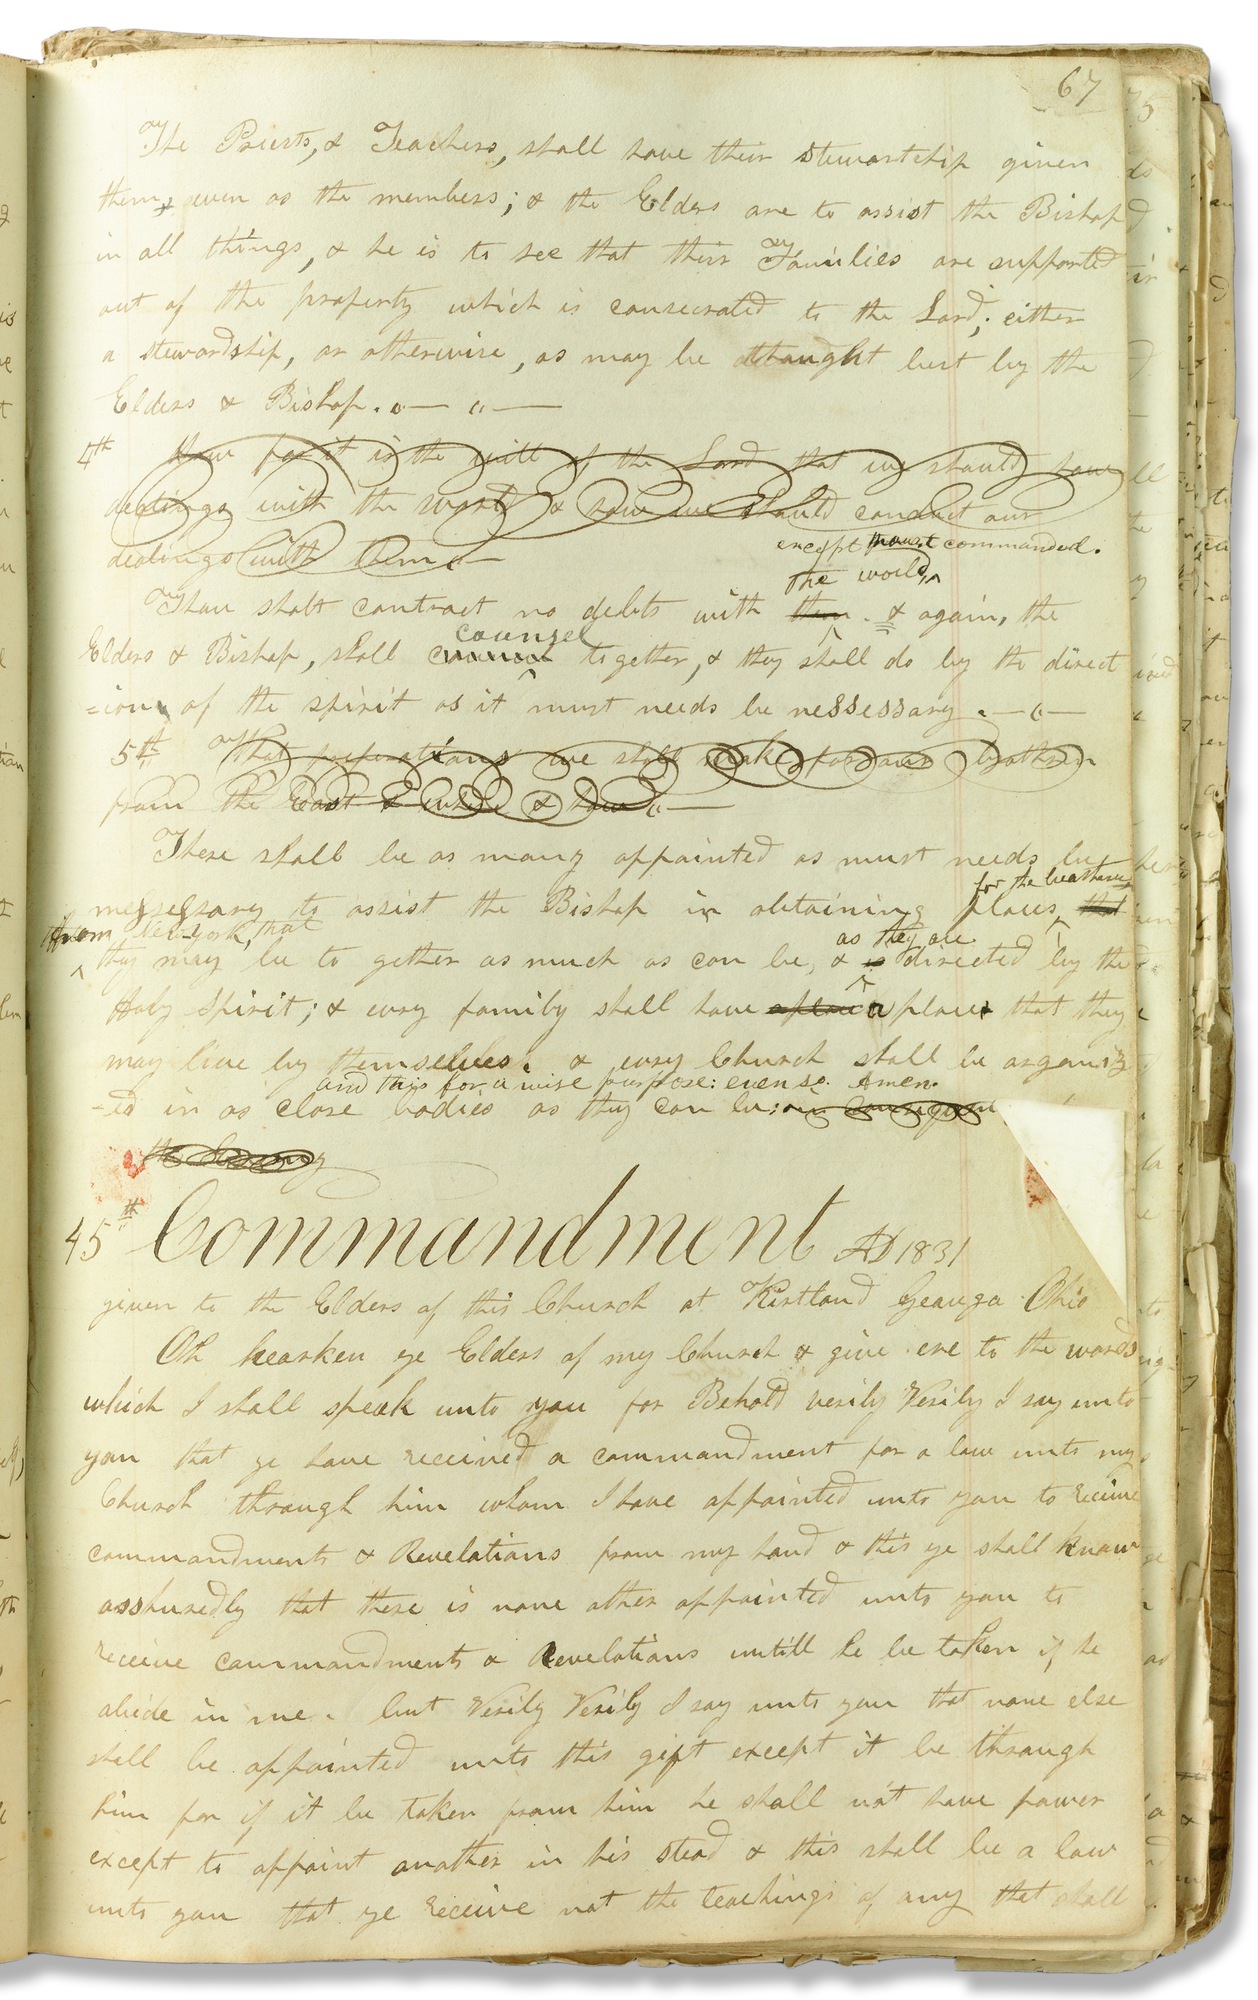 67
The Priests, & Teachers, shall have their stewartship given
them, even as the members; & the Elders are to assist the Bishop
in all things, & he is to see that their Families are supported
out of the property which is consecrated to the Lord; either
a stewardship, or otherwise, as may be thaught best by the
Elders & Bishop.
4th How far it is the will of the Lord that we should have
dealings with the world & how we should conduct our
dealings with them
except thou art commanded.
the world,
Thou shalt contract no debts with them. & again, the
counsel
Elders & Bishop, shall together, & they shall do by the direct
=ion of the spirit as it must needs be nessessary.
5th What preparations we shall make for our brethren
from the East & where & how
There shall be as many appointed as must needs be
for the breatheren
nessessary to assist the Bishop in obtaining places that
from New-york, that
as they are
they may be to gether as much as can be, & is directed by the
Holy Spirit; & every family shall have a place a place that they
may live by themselves. & every Church shall be organiz
and this for a wise purpose: even so. Amen.
-ed in as close bodies as they can be: in consequence
the enemy
45th Commandment AD 1831
given to the Elders of this Church at Kirtland Geauga Ohio
Oh hearken ye Elders of my Church & give ere to the words
which I shall speak unto you for Behold verily Verily I say unto
you that ye have received a commandment for a law unto my
Church through him whom I have appointed unto you to receive
commandments & Revelations from my hand & this ye shall know
asshuredly that there is none other appointed unto you to
receive commandments & Revelations untill he be taken if he
abide in me. but Verily Verily I say unto you that none else
shall be appointed unto this gift except it be through
him for if it be taken from him he shall not have power
except to appoint another in his stead & this shall be a law
unto you that ye receive not the teachings of any that shall